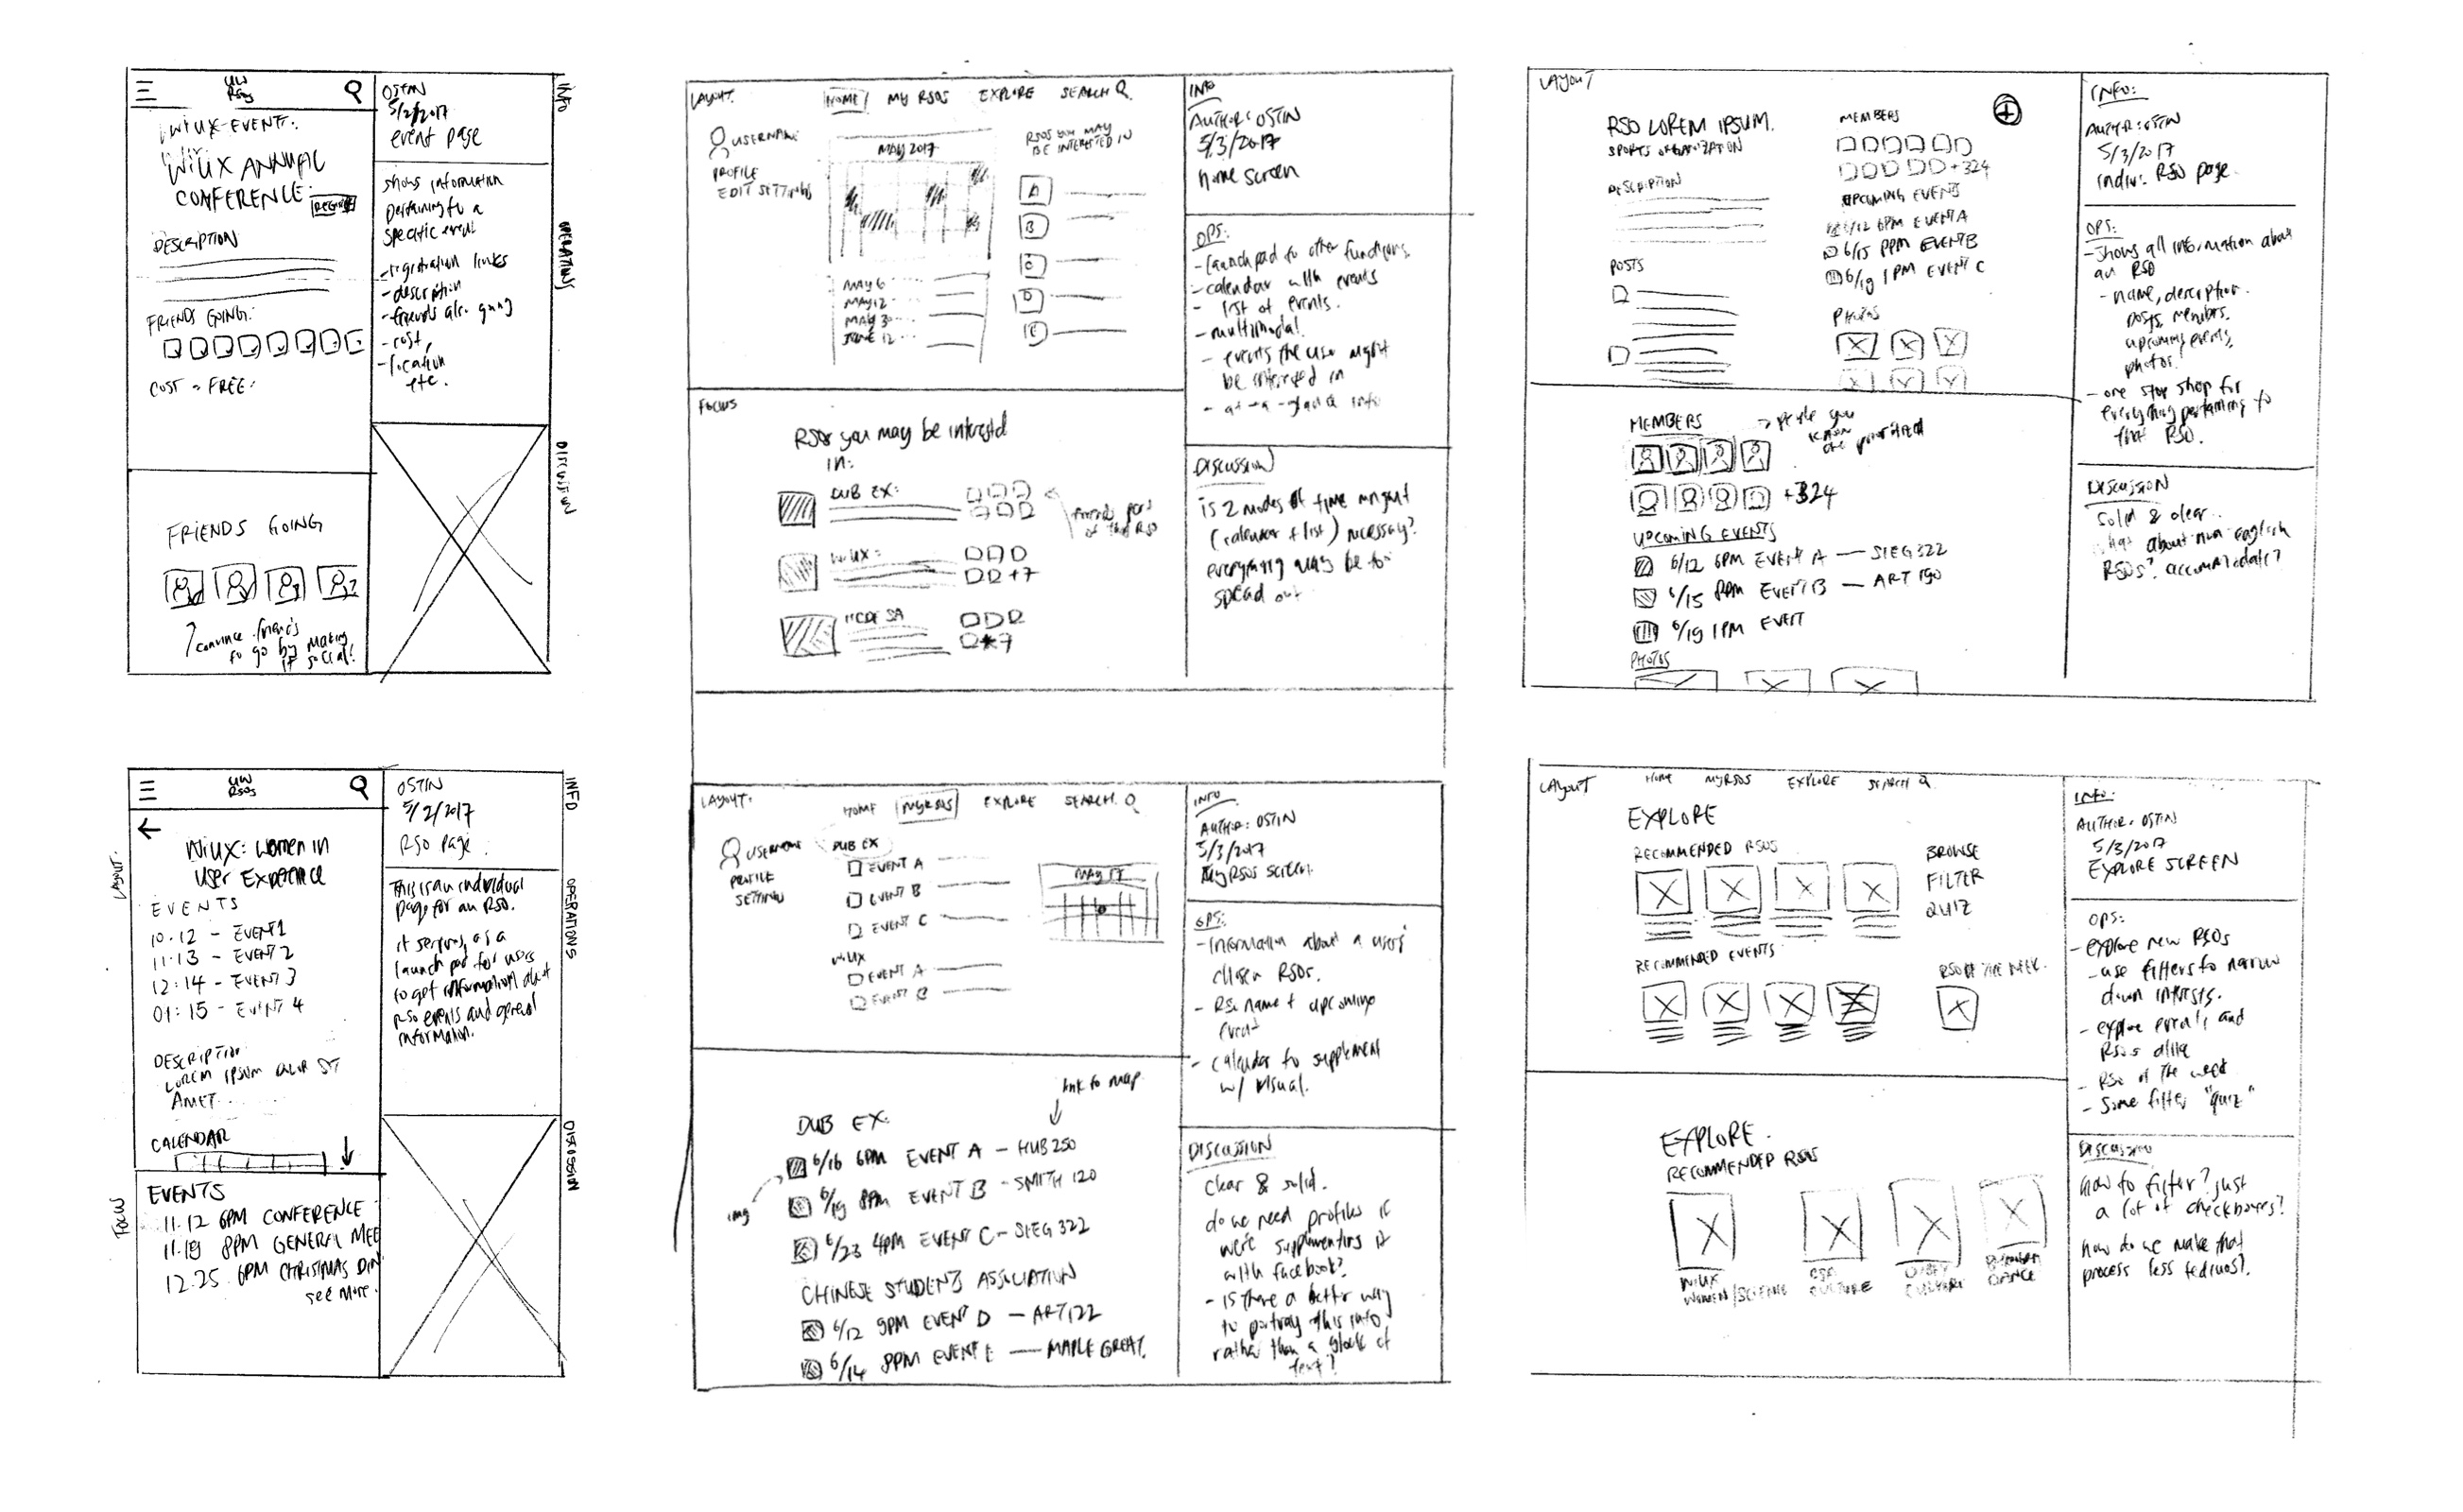 UW
RSOs
WiUX ANNUAL
CONFERENCE:
DESCRIPTION
FRIENDS GOING:
COST = FREE:
FRIENDS GOING
convince friends
to go by making
it social!
OSTIN
5/2/2017
event page
shows information
pertaining to a
specific event
- registration links
- description
- friends also going
- cost,
- location
etc.
INFO
OPERATIONS
DISCUSSION
LAYOUT:
HOME
MY RSOS
EXPLORE
SEARCH
USERNAME
PROFILE
EDIT SETTINGS
MAY 2017
MAY 6
MAY 12
MAY 30
JUNE 12
RSOS YOU MAY
BE INTERESTED IN
A
B
C
D
E
FOCUS
RSOs you may be interested
in:
DUB EX:
WiUX:
HCDE SA
+7
friends part
of that RSO
INFO
AUTHOR: OSTIN
5/3/2017
home screen
OPS:
- launchpad to other functions
- calendar with events
- list of events.
- multimodal
- events the user might
be interested in
- at-a-glance info
DISCUSSION
is 2 modes of time mngmt
(calendar + list) necessary?
everything may be too
spread out
LAYOUT
RSO LOREM IPSUM.
SPORTS ORGANIZATION
DESCRIPTION
POSTS
MEMBERS
+324
UPCOMING EVENTS
6/12 6PM EVENT A
6/15 8PM EVENT B
6/19 1PM EVENT C
PHOTOS
MEMBERS
people you
know
are prioritized
+324
UPCOMING EVENTS
6/12 6PM EVENT A — SIEG 322
6/15 8PM EVENT B — ART 190
6/19 1PM EVENT
PHOTOS
INFO:
AUTHOR: OSTIN
5/3/2017
indiv. RSO page.
OPS:
- shows all information about
an RSO
- name, description.
posts, members,
upcoming events,
photos!
- one stop shop for
everything pertaining to
that RSO.
DISCUSSION
solid & clear.
what about non english
RSOS? accommodate?
LAYOUT.
FOCUS
UW
RSOs
WiUX: Women in
User Experience
EVENTS
10.12 - EVENT 1
11.13 - EVENT 2
12.14 - EVENT 3
01.15 - EVENT 4
DESCRIPTION
LOREM IPSUM DOLOR SIT
AMET.
CALENDAR
EVENTS
11.12 6PM CONFERENCE
11.18 8PM GENERAL MEE
12.25 6PM CHRISTMAS DIN
see more.
OSTIN
5/2/2017
RSO page.
This is an individual
page for an RSO.
it serves as a
launch pad for users
to get information about
RSO events and general
information.
INFO
OPERATIONS
DISCUSSION
LAYOUT:
HOME
MY RSOS
EXPLORE
SEARCH.
USERNAME
PROFILE
SETTING
DUB EX
EVENT A
EVENT B
EVENT C
WiUX
EVENT A
EVENT B
MAY 17
link to map
DUB EX.
6/16 6PM EVENT A — HUB 250
6/19 8PM EVENT B - SMITH 120
6/23 4PM EVENT C - SIEG 322
img
CHINESE STUDENTS ASSOCIATION
6/12 9PM EVENT D — ART 122
6/14 8PM EVENT E — MAPLE GREAT.
INFO
AUTHOR: OSTIN
5/3/2017
My RSOs screen.
OPS:
- Information about a users'
chosen RSOs.
- RSO name + upcoming
event
- calendar to supplement
w/ visual.
DISCUSSION
clear & solid.
do we need profiles if
we're supplementing it
with facebook?
- is there a better way
to portray this info
rather than a block of
text?
LAYOUT
HOME
MY RSOS
EXPLORE
SEARCH
EXPLORE
RECOMMENDED RSOS
BROWSE
FILTER
QUIZ
RECOMMENDED EVENTS
RSO OF THE WEEK.
EXPLORE.
RECOMMENDED RSOS
WiUX
WOMEN/SCIENCE
CULTURE
CULTURE
DANCE
INFO:
AUTHOR: OSTIN
5/3/2017
EXPLORE SCREEN
OPS:
- explore new RSOs
- use filters to narrow
down interests.
- explore events and
RSOs alike
- RSO of the week
- some filter "quiz"
DISCUSSION
how to filter? just
a lot of checkboxes?
how do we make that
process less tedious?